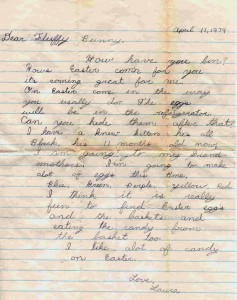 April 11, 1979
Dear Fluffy Bunny,
How have you ben?
Hows Easter comin for you
it's coming great for me.
On Easter come in the way
you usally do. The eggs
will be in the refrigerator.
Can you hide them after that?
I have a knew kitten. his all
Black his 11 months old now
im going to my friend
another. I'm going to make
alot of eggs this time,
Blue, Green, Purple, yellow Red
I think it is really
fun to find Easter eggs
and the baskets and
eating the candy from
the basket too.
I like alot of candy
on Easter.
Love,
Laura